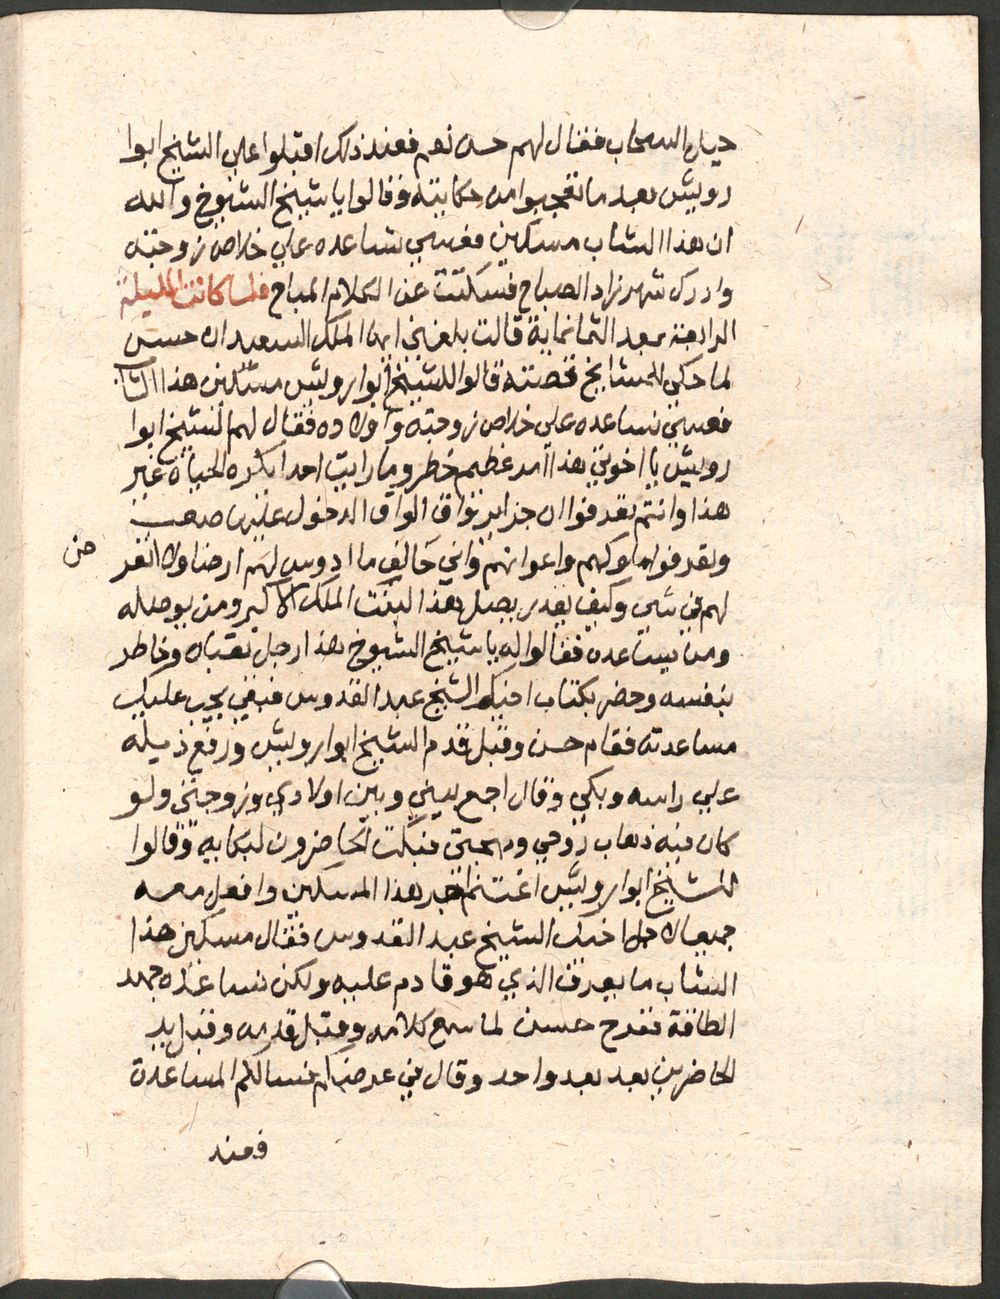 جبل السحاب فقال لهم حسن نعم فعند ذلك اقبلوا علي الشيخ ابوا
رويش بعد ما تعجبوا من حكايته وقالوا يا شيخ الشيوخ والله
ان هذا الشاب مسكين فعسي تساعده علي خلاص زوجته
وادرك شهرزاد الصباح فسكتت عن الكلام المباح فلما كانت الليلة
الرابعة بعد الثمانماية قالت بلغني ايها الملك السعيد ان حسن
لما حكي للمشايخ قصته قالوا للشيخ ابوا رويش مسكين هذا الشاب
فعسي تساعده علي خلاص زوجته واولاده فقال لهم الشيخ ابوا
رويش يا اخوتي هذا امر عظيم خطر وما رايت احدا يكره الحياة غير
هذا وانتم تعرفوا ان جزاير واق الواق الدخول عليها صعب
وتعرفوا ملوكهم واعوانهم واني حالف ما ادوس لهم ارضا ولا اتعرض
لهم في شي وكيف يقدر يصل هذا البنت الملك الاكبر ومن يوصله
ومن يساعده فقالوا له يا شيخ الشيوخ هذا رجل تعبان وخاطر
بنفسه وحضر بكتاب اخيك الشيخ عبد القدوس فبقي يجب عليك
مساعدته فقام حسن وقبل قدم الشيخ ابوا رويش ورفع ذيله
علي راسه وبكي وقال اجمع بيني وبين اولادي وزوجتي ولو
كان فيه ذهاب روحي ومهجتي فبكت الحاضرون لبكايه وقالوا
للشيخ ابوا رويش اغتنم اجر هذا المسكين وافعل معه
جميعا لاجل اخيك الشيخ عبد القدوس فقال مسكين هذا
الشاب ما يعرف الذي هو قادم عليه ولكن نساعده جهد
الطاقة ففرح حسن لما سمع كلامه وقبل قدمه وقبل يد
الحاضرين بعد بعد واحد وقال في عرضكم نسالكم المساعدة
فعند